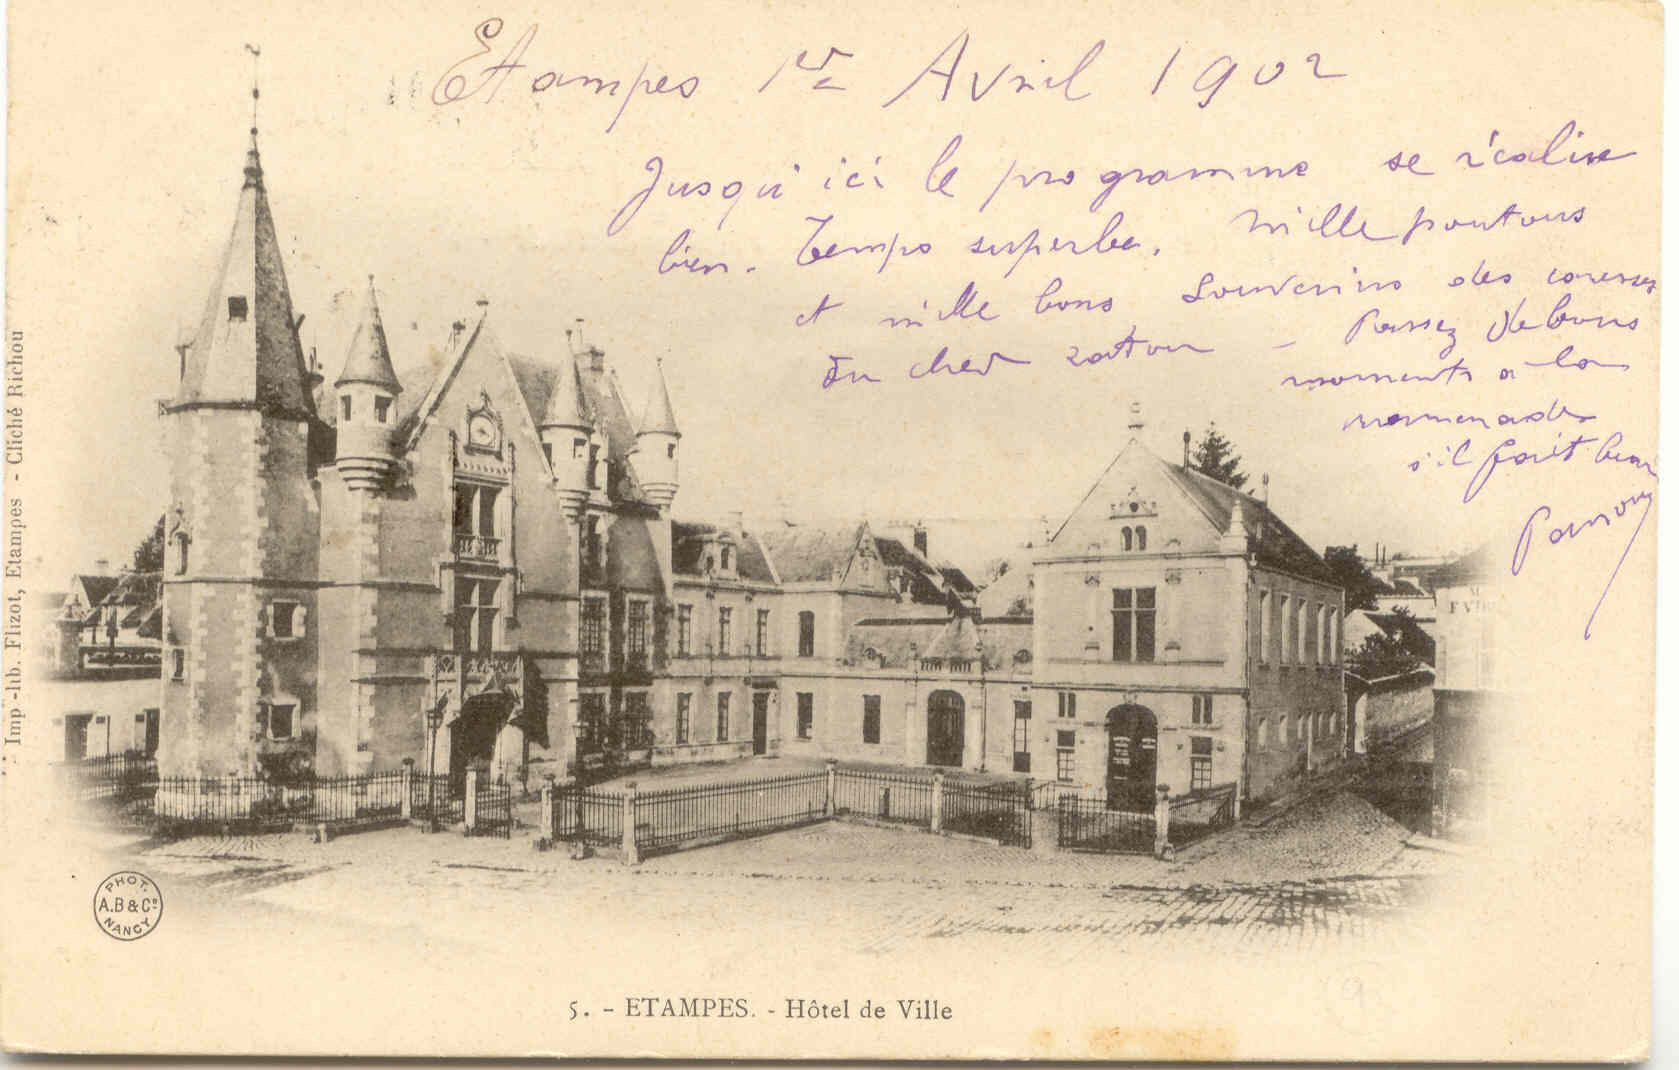 Etampes 1er Avril 1902
Jusqu'ici le programme se réalise
bien. Temps superbe. Mille poutous
et mille bons souvenirs des caresses
du cher raton - Passez de bons
moments à la
promenade
s'il fait beau
Imp.-lib. Flizot, Etampes - Cliché Richou
PHOT.
A.B & Cº
NANCY
5. - ETAMPES. - Hôtel de Ville